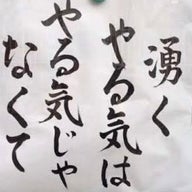 やる気は
湧く
やる気じゃ
なくて